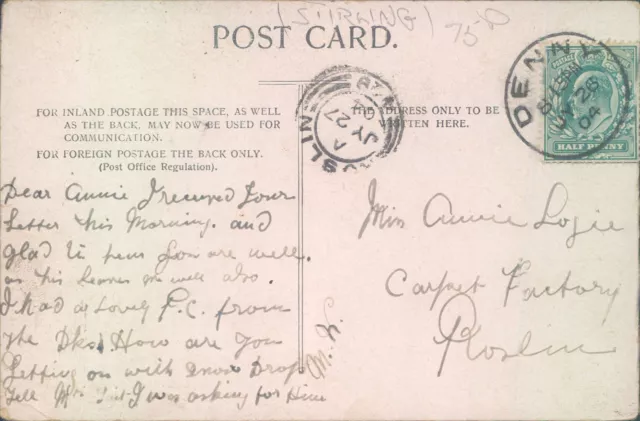 (STIRLING)
75P
POST CARD.
FOR INLAND POSTAGE THIS SPACE, AS WELL
AS THE BACK, MAY NOW BE USED FOR
COMMUNICATION.
FOR FOREIGN POSTAGE THE BACK ONLY.
(Post Office Regulation).
THE ADDRESS ONLY TO BE
WRITTEN HERE.
ROSLIN
A
JY 27
04
DENNY
JY 26
04
HALF PENNY
Dear Annie I received your
letter this Morning. and
glad to hear you are well.
as this leaves me well also.
I had a lovely P.C. from
the How are you
Getting on with Snow Drop
Tell I was asking for him
M. K.
Miss Annie Logie
Carpet Factory
Roslin